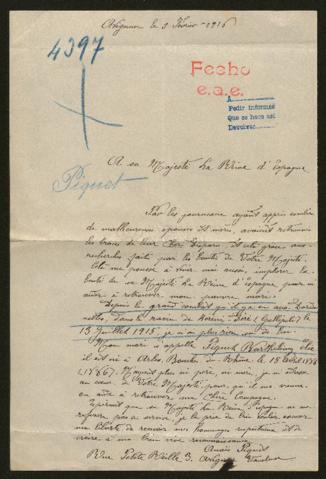 Avignon le 3 Février 1916
4397
Fecho
e.a.e.
A
Pedir informes
Que se hace asi
Devolver
A sa Majesté La Reine d'Espagne
Piquet
Par les journeaux ayant appris combien
de malheureuses épouses et mères, avaient retrouvés
les traces de leur Cher Disparu. Et cela grâce aux
recherches faite par les bontés de Votre Majesté.
m'a poussé à vous moi aussi, implorer la
bonté de sa Majesté La Reine d'Espagne pour m'
aider à retrouver mon pauvre mari.
Depuis le grand combat qu'il y a eu aux Darda-
nelles, dans le ravin de (Gallipoli) le
13 Juillet 1915, je n'ai plus rien de lui
Mon mari s'appelle Piquet Barthélemy
il est né à Arles, Bouches du Rhône le 18
N'ayant plus ni père, ni mère, je m'adresse
au cœur de Votre Majesté, pour qu'il me vienne
en aide à retrouver, mon Cher Compagnon.
Espérant que sa Majesté La Reine d'Espagne ne me
refusera pas ce service, je la prie de bien vouloir
agréer mes hommages respectueux, et de
croire à ma bien vive reconnaissance
Anaïs Piquet
Rue Petite 3. Avignon Vaucluse